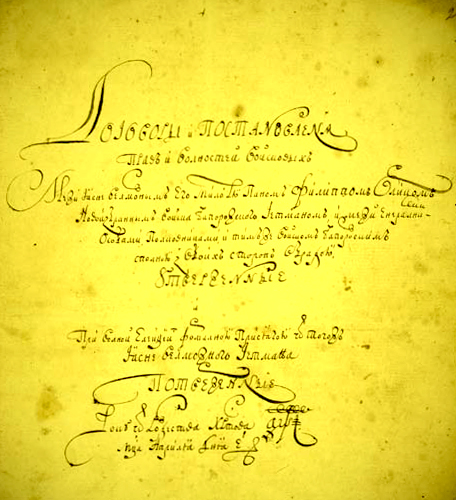 ДОГОВОРЫ и ПОСТАНОВЛЕНЯ
Правъ и волностей войсковыхъ
Межи Ясне велможнымъ Его Млстю Паномъ Филипомъ Орликомъ
Новоизбраннимъ Войска Запорожского Гетманомъ, и межи Енерални-
ми
Особами Полковниками и тимъ же Войскомъ Запорозскимъ
сполною з обоихъ сторонъ обрадою
УТВЕРЖЕННЫЕ
и
При волной Елекцiей формалною Присягою ѿ тогожъ
Ясне велможного Гетмана
ПОТВЕРЖЕННЫЕ
Року ѿ Рождества Христова
мца Априлiя дня 5